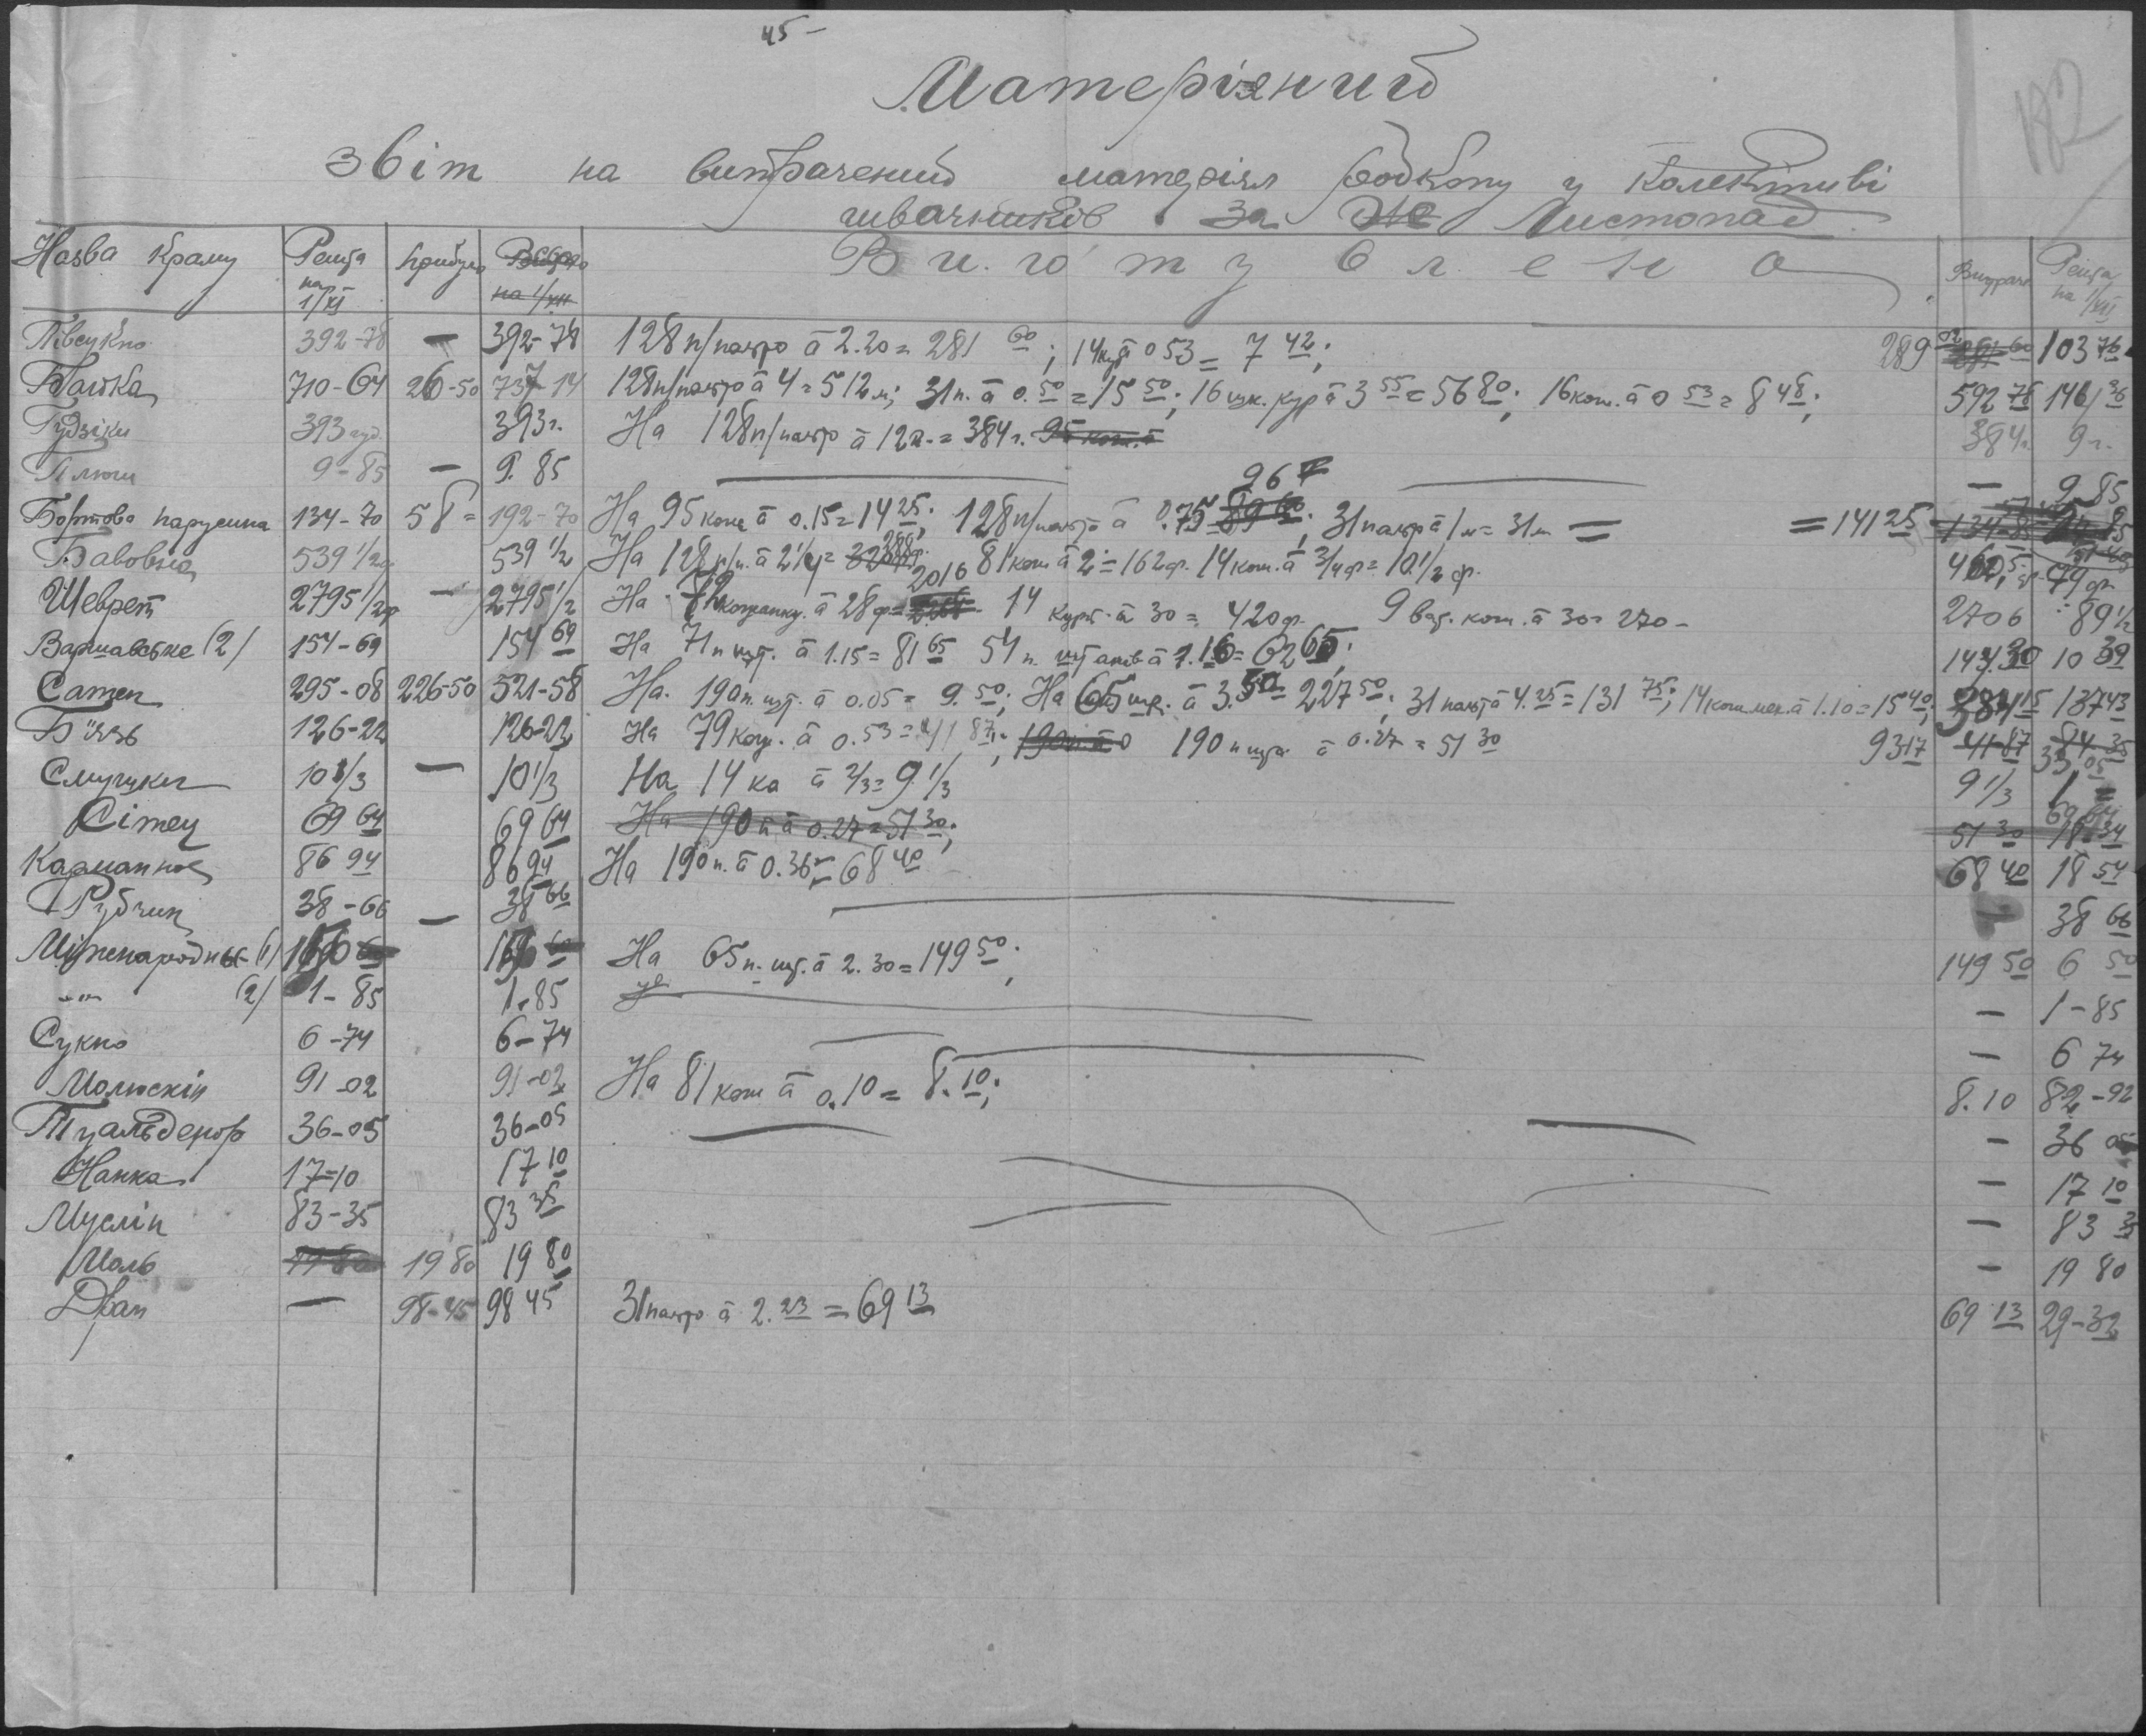 45 –
182
Матеріяний
звіт на витрачений матеріял Водкопу у Колективі
швачників за Листопад
Назва Краму Решта на 1/XI прибуло Всього на 1/XII Виготувлено Витрач Решта на 1/XII
Півсукно 392-78 — 392-78 128 п/пальто à 2.20 = 281 60; 14 кур à 0 53 = 7 42; 289 02 103 76
Байка 710-64 26-50 737 14 128 п/пальто à 4 = 512 м; 31 п. à 0.50 = 15 50; 16 шк. кур à 3 55 = 56 80; 16 кош. à 0 53 = 8 48; 592 78 146 36
Гудзіки 393 гуд. 393 г. На 128 п/пальто à 12 г. = 384 г. 95 кош. à 384 г. 9 г.
Плюш 9-85 — 9.85 — 9 85
Бортова парусина 134-70 58= 192-70 На 95 кош à 0.15 = 14 25; 128 п/пальто à 0.75 96 31 пальт à 1 м = 31 м = = 141 25
Бавовна 539 1/2 539 1/2 На 128 п/п. à 2 1/4 = 288 81 кош à 2 = 162 ф. 14 кош. à 3/4 ф = 10.1/2 ф. 460,5 79 ф.
Шеврет 2795 1/2 ф — 2795 1/2 На 72 кожанку. à 28 ф = 2016 14 курт. à 30 = 420 ф. 9 ват. кош. à 30 = 270 – 2706 89 1/2
Варшавське (2) 154-69 154 69 На 71 п шт. à 1.15 = 81 65 54 п. штанів à 1.16 = 62 65; 143.30 10 39
Сатен 295-08 226-50 521-58 На 190 п. шт. à 0.05 = 9.50; На 65 шт. à 3.50 = 227 50; 31 пальт à 4.25 = 131 75; 14 кош. мех. à 1.10 = 15 40; 384 15 137 43
Бязь 126-22 126-22 На 79 кош. à 0.53 = 41 87; 190 п. à 0 190 п шт. à 0.27 = 51 30 93 17 41-87 84 35 33 05
Смушки 10 1/3 — 10 1/3 На 14 ка à 2/3 = 9 1/3 9 1/3 1 =
Сітец 69 64 69 64 На 190 п à 0.27 = 51 30; 51 30 18 34 69 64
Карманное 86 94 86 94 На 190 п. à 0.36 = 68 40 68 40 18 54
Рубчик 38-66 — 38 66 — 38 66
Міженародный (1) На 65 п. шт. à 2.30 = 149 50; 149 50 6 50
-"- (2) 1-85 1-85 — 1-85
Сукно 6-74 6-74 — 6 74
Молюскін 91-02 91-02 На 81 кош à 0.10 = 8.10; 8.10 82-92
Туальденор 36-05 36-05 — 36 05
Нанка 17=10 17 10 — 17 10
Муслін 83-35 83 35 — 83 35
Моль 19 80 19 80 19 80 — 19 80
Драп — 98-45 98 45 31 пальто à 2.23 = 69 13 69 13 29-32